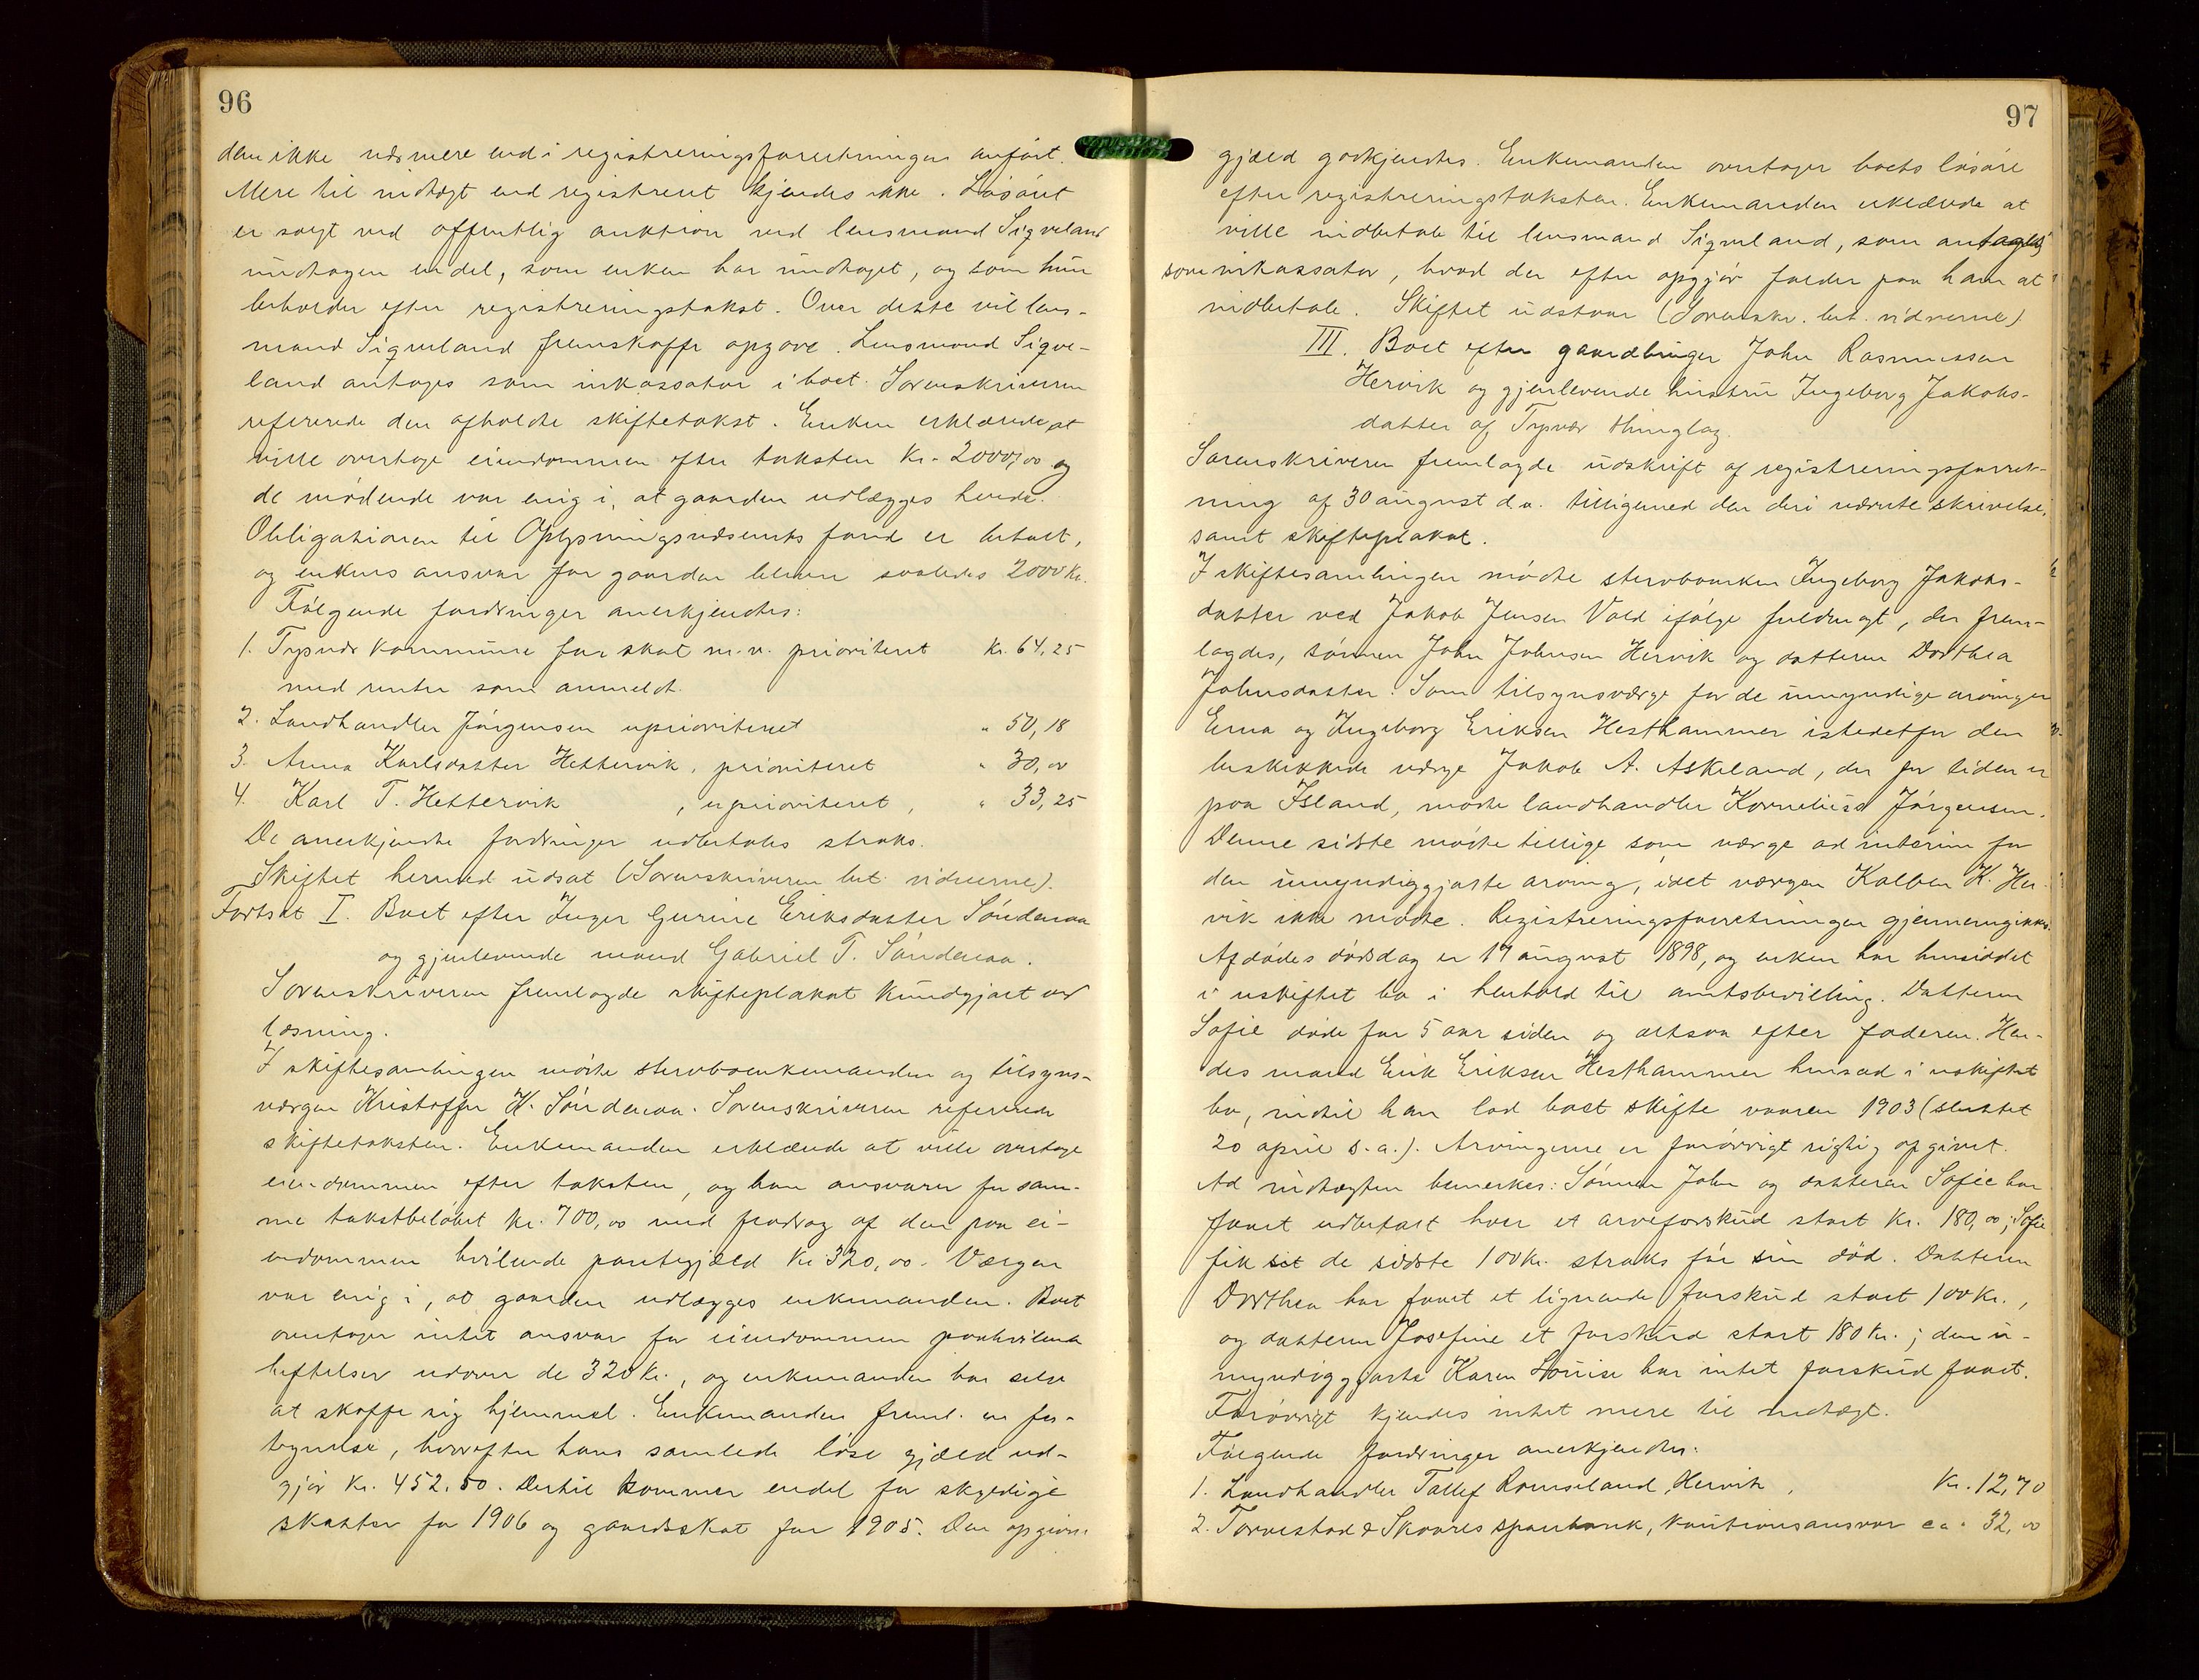 96
dem ikke nærmere end i registreringsforretningen anført.
Mere til indtægt end registreret kjendes ikke. Løsøret
er solgt ved offentlig auktion ved lensmand Sigveland
undtagen endel, som enken har undtaget, og som hun
beholder efter registreringstakst. Over dette vil lens-
mand Sigveland fremskaffe opgave. Lensmand Sigve-
land antages som inkassator i boet. Sorenskriveren
refererede den afholdte skiftetakst. Enken erklærede at
ville overtage eiendommen efter taksten kr. 2000,00 og
de mødende var enig i, at gaarden udlægges hende.
Obligationen til Oplysningsvæsenets fond er betalt,
og enkens ansvar for gaarden bliver saaledes 2000 kr.
Følgende fordringer anerkjendtes:
1. Tysvær kommune for skat m.v. prioriteret kr. 64,25
med renter som anmeldt.
2. Landhandler Jørgensen uprioriteret " 50,18
3. Anna Karlsdatter Hettervik, prioriteret " 30,00
4. Karl T. Hettervik, uprioriteret, " 33,25
De anerkjendte fordringer udbetales straks.
Skiftet hermed udsat (Sorenskriveren bet. vidnerne).
Fortsat I. Boet efter Inger Gurine Eriksdatter Søndenaa
og gjenlevende mand Gabriel T. Søndenaa.
Sorenskriveren fremlagde skifteplakat kundgjort ved
læsning.
I skiftesamlingen mødte stervboenkemanden og tilsyns-
værgen Kristoffer K. Søndenaa. Sorenskriveren refererede
skiftetaksten. Enkemanden erklærede at ville overtage
eiendommen efter taksten, og han ansvarer for sam-
me takstbeløbet kr. 700,00 med fradrag af den paa ei-
endommen hvilende pantegjæld kr. 320,00. Værgen
var enig i, at gaarden udlægges enkemanden. Boet
overtager intet ansvar for eiendommen paahvilende
heftelser udover de 320 kr., og enkemanden har selv
at skaffe sig hjemmel. Enkemanden freml. en for-
tegnelse, hvorefter hans samlede løse gjæld ud-
gjør kr. 452.50. Dertil kommer endel for skyldige
skatter for 1906 og gaardsskat for 1905. Den opgivne
97
gjæld godkjendtes. Enkemanden overtager boets løsøre
efter registreringstaksten. Enkemanden erklærede at
ville indbetale til lensmand Sigveland, som antages
som inkassator, hvad der efter opgjør falder paa ham at
indbetale. Skiftet udstaar (Sorenskr. bet. vidnerne)
III. Boet efter gaardbruger John Rasmussen
Hervik og gjenlevende hustru Ingeborg Jakobs-
datter af Tysvær thinglag.
Sorenskriveren fremlagde udskrift af registreringsforret-
ning af 30 august d.a. tilligemed den deri nævnte skrivelse,
samt skifteplakat.
I skiftesamlingen mødte stervboenken Ingeborg Jakobs-
datter ved Jakob Jensen Vold ifølge fuldmagt, der frem-
lagdes, sønnen John Johnsen Hervik og datteren Dorthea
Johnsdatter. Som tilsynsværge for de umyndige arvinger
Erna og Ingeborg Eriksen Hesthammer istedetfor den
beskikkede værge Jakob A. Askeland, der for tiden er
paa Island, mødte landhandler Kornelius Jørgensen.
Denne sidste mødte tillige som værge ad interim for
den umyndiggjorte arving, idet værgen Kolben K. Her-
vik ikke mødte. Registreringsforretningen gjennemgikkes.
Afdødes dødsdag er 17 august 1898, og enken har hensiddet
i uskiftet bo i henhold til amtsbevilling. Datteren
Sofie døde for 5 aar siden og altsaa efter faderen. Hen-
des mand Erik Eriksen Hesthammer hensad i uskiftet
bo, indtil han lod boet skifte vaaren 1903 (sluttet
20 april s.a.). Arvingerne er forøvrigt rigtig opgivet.
Ad indtægten bemerkes: Sønnen John og datteren Sofie har
faaet udbetalt hver et arveforskud stort kr. 180,00; Sofie
fik de sidste 100 kr. straks før sin død. Datteren
Dorthea har faaet et lignende forskud stort 100 kr.,
og datteren Josefine et forskud stort 180 kr.; den u-
myndiggjorte Karen Louise har intet forskud faaet.
Forøvrigt kjendes intet mere til indtægt.
Følgende fordringer anerkjendtes:
1. Landhandler Tallef Hervik, kr. 12,70
2. Torvestad & Skaares sparebank, kautionsansvar ca. 32,00